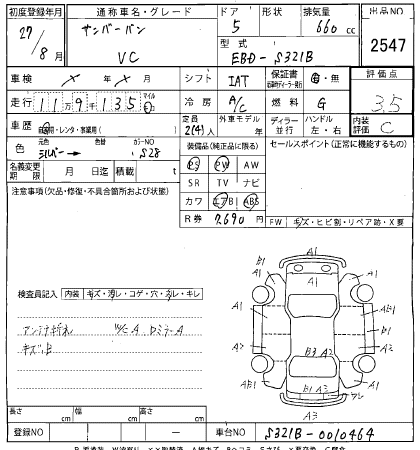 初度登録年月 通称車名・グレード ドア 形状 排気量 出品NO
27/8月 サンバーバン VC 5 660cc 2547
型式 EBD-S321B
車検 ×年×月 シフト IAT 保証書 有・無 評価点
走行 11万9千135 マイル 冷房 A/C 燃料 G 3.5
車歴 自家用・レンタ・事業用( ) 定員 2(4)人 外車モデル 年 ディーラー 並行 ハンドル 左・右 内装評価 C
色 元色 シルバー→ 色替 カラーNO S28 装備品(純正品に限る) セールスポイント(正常に機能するもの)
名義変更期限 月 日迄 積載 t PS PW AW
注意事項(欠品・修復・不具合箇所および状態) SR TV ナビ
カワ エアB ABS
R券 7690円 FW キズ・ヒビ割・リペア跡・X要
検査員記入 内装 キズ・汚レ・コゲ・穴・スレ・キレ
アンテナ折れ
キズ凹
A1
A1
A1
B1
A1
A1
B1
B1
A2
A2
B3 A2
AB1
AB1
B1 A3
A3
長さ cm 幅 cm 高さ cm
登録NO － 車台NO S321B-0010464